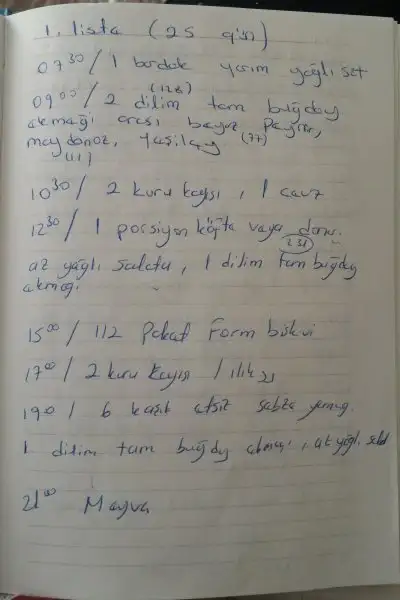 1. lista (25 gün)
07 30 / 1 bardak yarım yağlı süt
(128)
09 00 / 2 dilim tam buğday
ekmeği arası beyaz peynir,
maydonoz, yaşilçay (77)
(11)
10 30 / 2 kuru kayısı, 1 caviz
12 30 / 1 porsiyon köfte veya
az yağlı salata, 1 dilim tam buğday
ekmeği.
15 00 / 1/2 Paket Form bisküvi
17 00 / 2 kuru kayısı / ılık
19 0 / 6 kaşık etsiz sebze yemeği.
1 dilim tam buğday ekmeği, az yağlı salat
21 00 Mayva